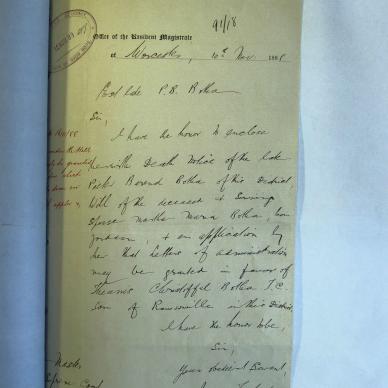 91/18
Office of the Resident Magistrate
at Worcester, 10th Nov. 188
Estate P. B. Botha
Sir,
I have the honor to enclose
herewith Death Notice of the late
Pieter Barend Botha of this District,
Will of the deceased & Surviving
Spouse Martha Maria Botha, born
Jordaan, & an application by
her that Letters of administration
may be granted in favor of
Theunis Christoffel Botha T.C.
son of Rawsonville in this District.
I have the honor to be,
Sir,
Your obedient Servant,
Master